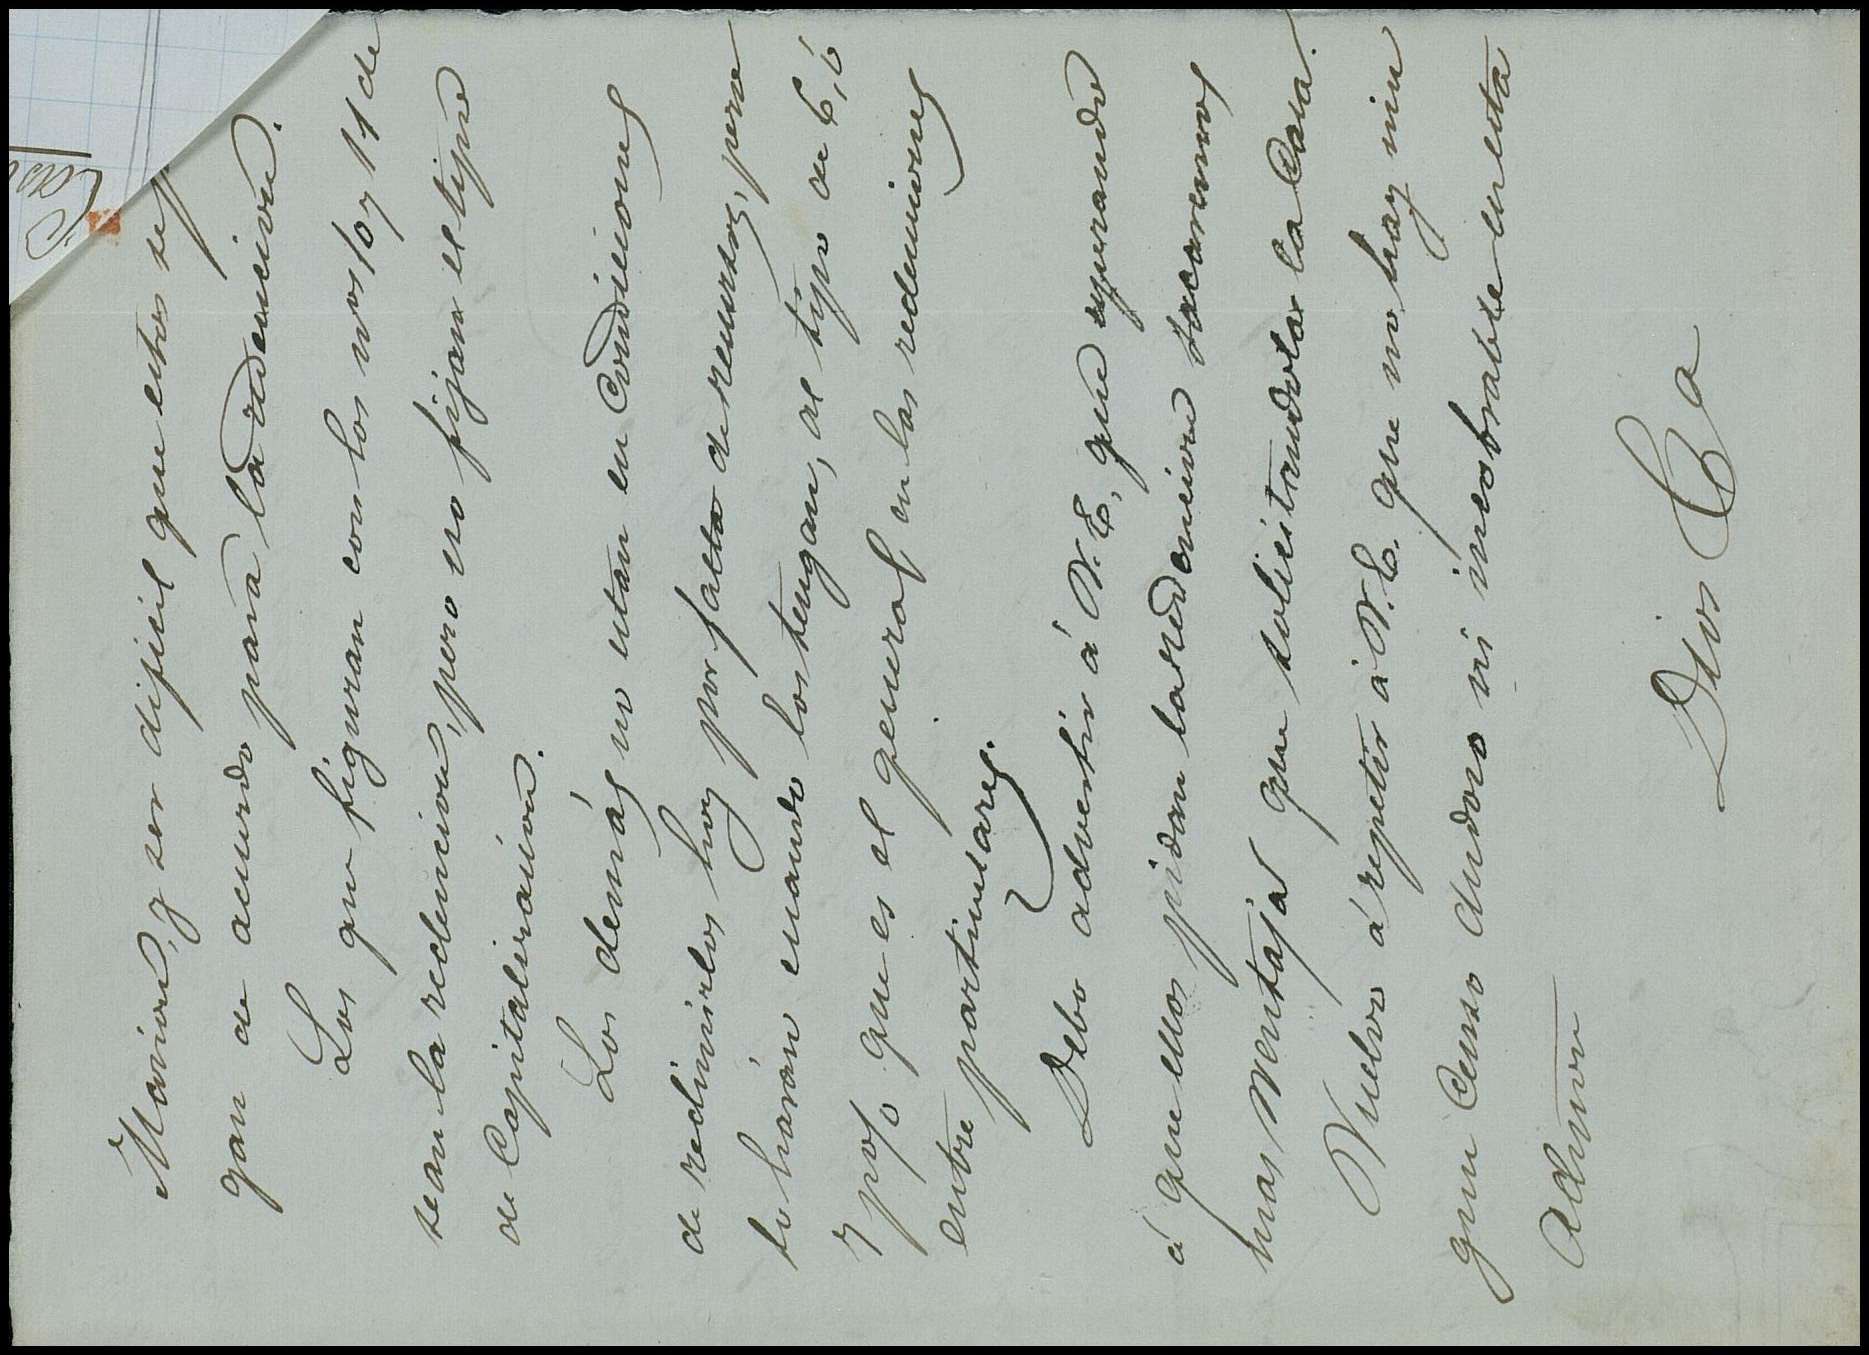 Marión, y ser dificil que estos ten
gan de acuerdo para la redencion.
Los que figuran con los nos 10 y 11 de
sean la redencion, pero no fijan el tipo
de Capitalizaión.
Los demás no estan en Condiciones
de redimirlos hoy por falta de recursos, pero
lo harán cuando los tengan, al tipo de 6, ó
7 p% que es el general en las redenciones
entre particulares.
Debo advertir á V.E, que esperando
á que ellos pidan la redencion sacaremos
mas Ventaja que solicitandola la Casa.
Vuelvo á repetir á V.E. que no hay nin
gun Censo dudoso ni incobrable en esta
Admon
Dios &a
Cas